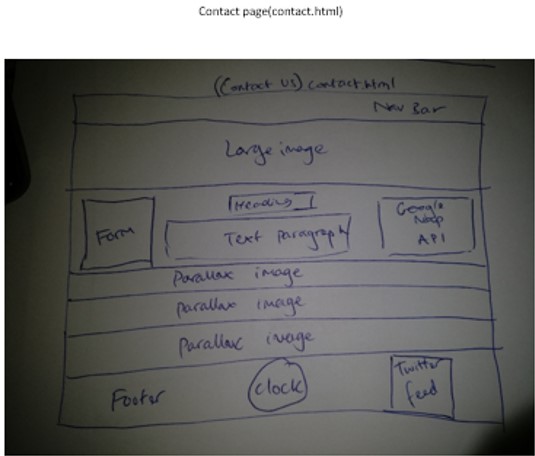 Contact page(contact.html)
(Contact us) contact.html
Nav Bar
Large image
Form
Heading 1
Text paragraph
Google
Map
API
Parallax image
Parallax image
Parallax image
Footer
Clock
Twitter
feed